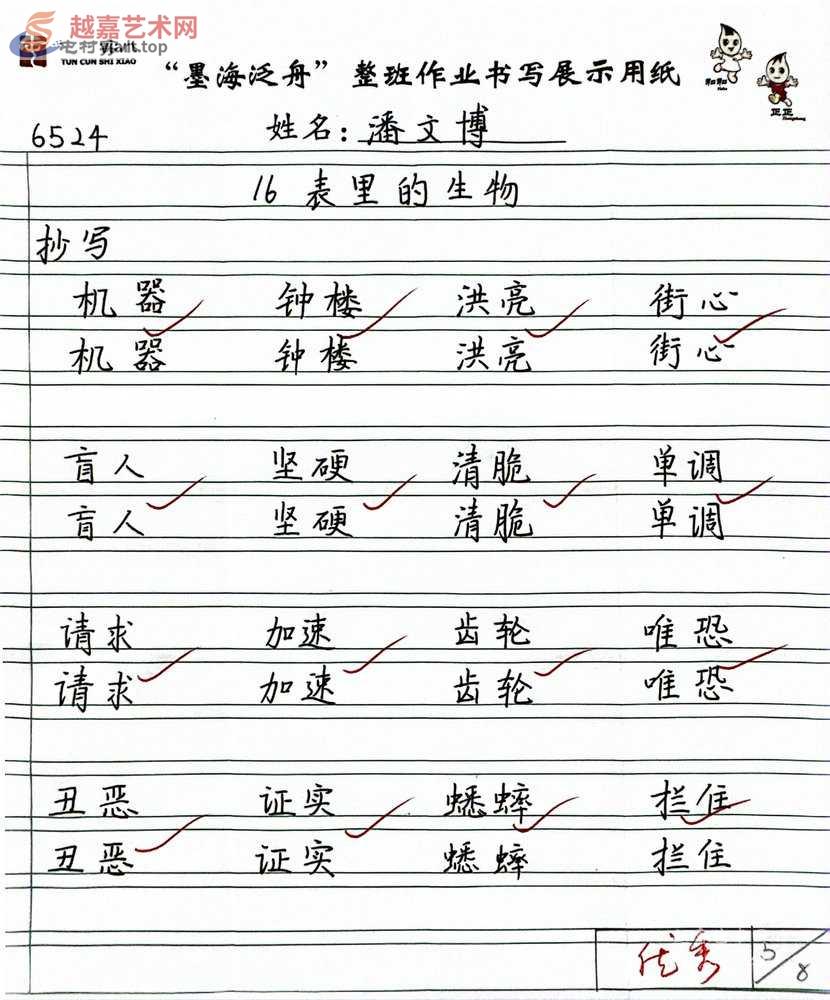 越嘉艺术网
屯村实校
yjart.top
TUN CUN SHI XIAO
“墨海泛舟”整班作业书写展示用纸
和和
Hehe
正正
Zhengzheng
6524 姓名:潘文博
16 表里的生物
抄写
机器 钟楼 洪亮 街心
机器 钟楼 洪亮 街心
盲人 坚硬 清脆 单调
盲人 坚硬 清脆 单调
请求 加速 齿轮 唯恐
请求 加速 齿轮 唯恐
丑恶 证实 蟋蟀 拦住
丑恶 证实 蟋蟀 拦住
优秀 5/8